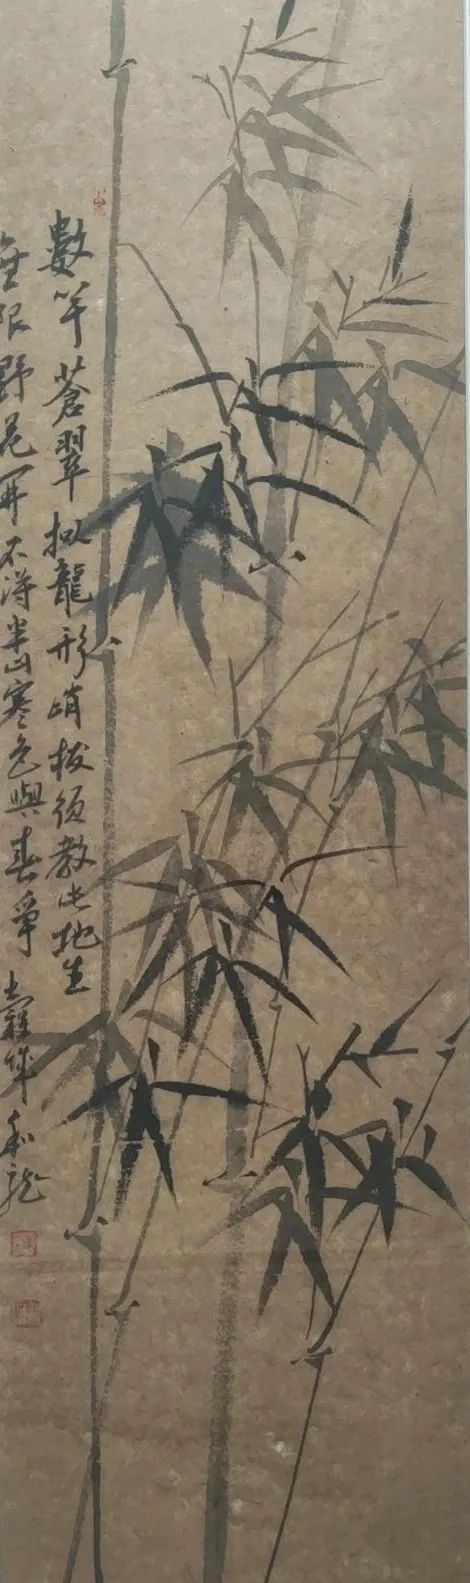 數竿蒼翠拟龍形峭拔須教此地生
無限野花開不得半山寒色與春爭